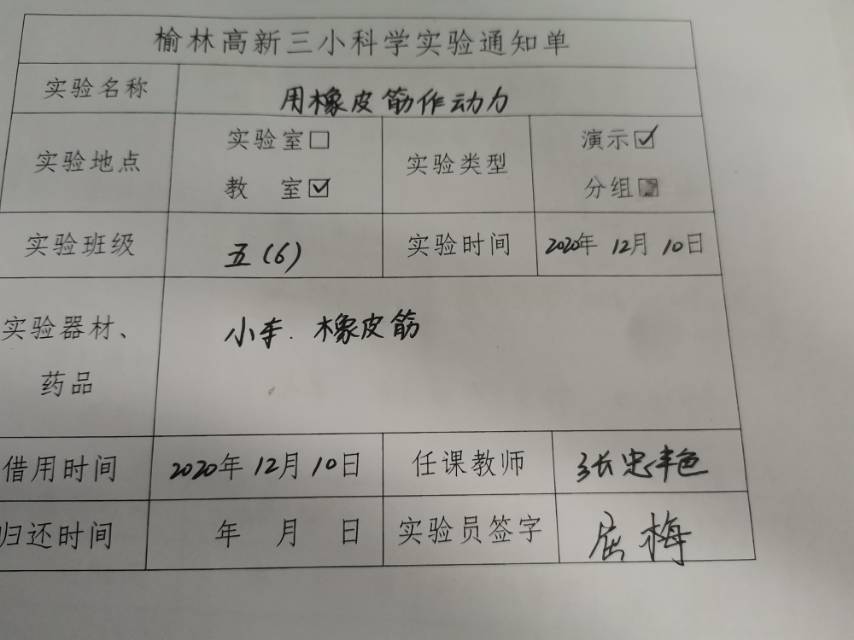 榆林高新三小科学实验通知单
实验名称 用橡皮筋作动力
实验地点 实验室□ 教 室☑ 实验类型 演示☑ 分组
实验班级 五(6) 实验时间 2020年 12月 10日
实验器材、 小车. 橡皮筋
药品
借用时间 2020年 12月 10日 任课教师 张忠
归还时间 年 月 日 实验员签字 屈梅